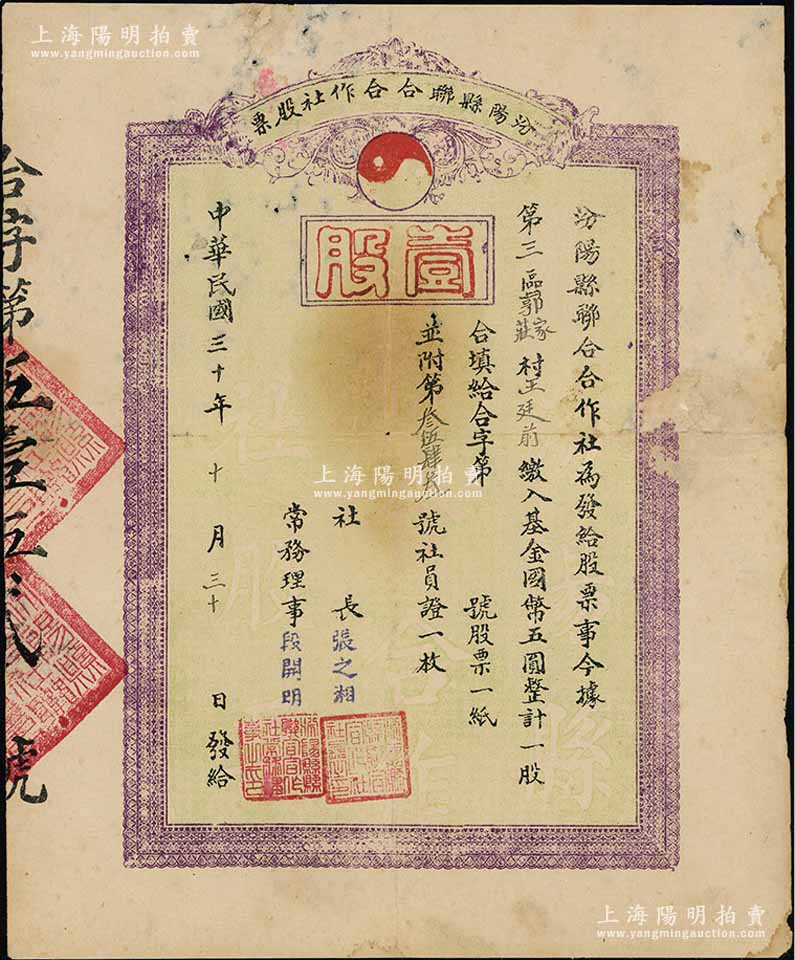 上海陽明拍賣
www.yangmingauction.com
汾陽縣聯合合作社股票
壹股
汾陽縣聯合合作社為發給股票事今據
第三區郭家莊村王廷前繳入基金國幣五圓整計一股
合填給合字第 號股票一紙
並附第叁伍肆 號社員證一枚
社 長張之湘
常務理事段開明
中華民國三十年十月三十日發給
合字第伍壹伍貳號
上海陽明拍賣
www.yangmingauction.com
上海陽明拍賣
www.yangmingauction.com